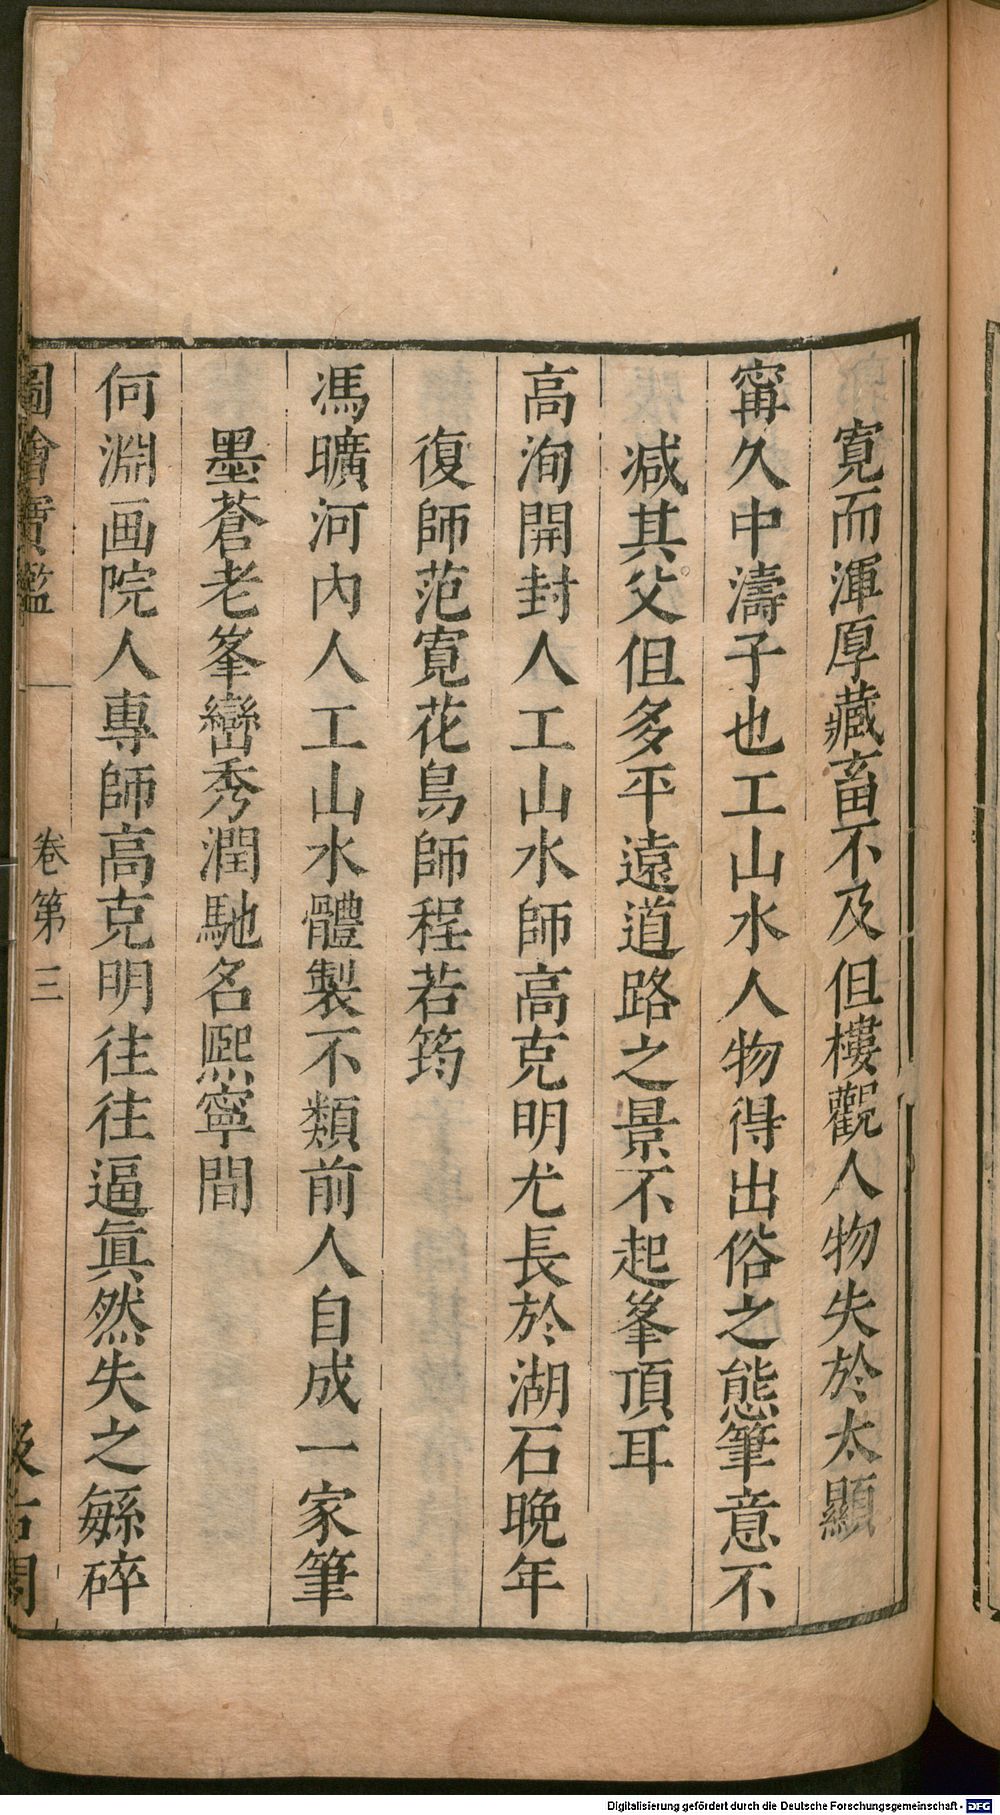 寬而渾厚藏畜不及但樓觀人物失於太顯
甯久中濤子也工山水人物得出俗之態筆意不
减其父但多平遠道路之景不起峯頂耳
高洵開封人工山水師高克明尤長於湖石晚年
復師范寬花鳥師程若筠
馮曠河內人工山水體製不類前人自成一家筆
墨蒼老峯巒秀潤馳名熈寧間
何淵画院人專師高克明往往逼眞然失之緐碎
圖繪寶鑑
卷第三
汲古閣
Digitalisierung gefördert durch die Deutsche Forschungsgemeinschaft - DFG